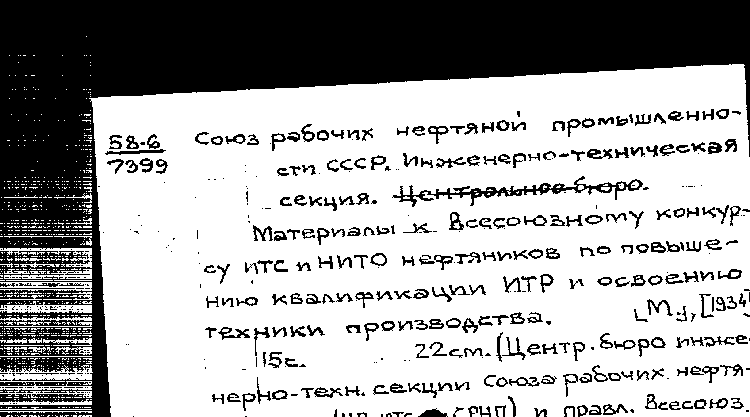 58-6 Союз рабочих нефтяной промышленно-
7399 сти СССР. Инженерно-техническая
секция. Центральное бюро.
Материалы к Всесоюзному конкур-
су ИТС и НИТО нефтяников по повыше-
нию квалификации ИТР и освоению
техники производства. [М., [1934]
15с. 22см. (Центр. бюро инже-
нерно-техн. секции Союза рабочих нефтя-
СРНП) и правл. Всесоюз.